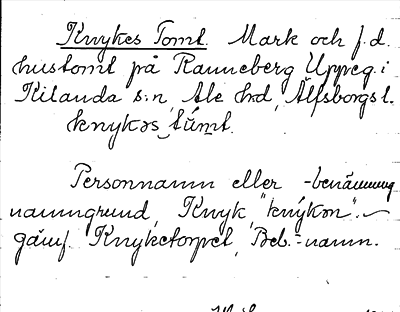 Knykes Tomt. Mark och f.d.
hustomt på Ranneberg Uppeg. i
Kilanda s:n, Ale hd, Älfsborgs l.
knykəs túmt.
Personnamn eller -benämning
namngrund, Knyk, "knýkən".
gämf. Knyketorpet, Beb.-namn.